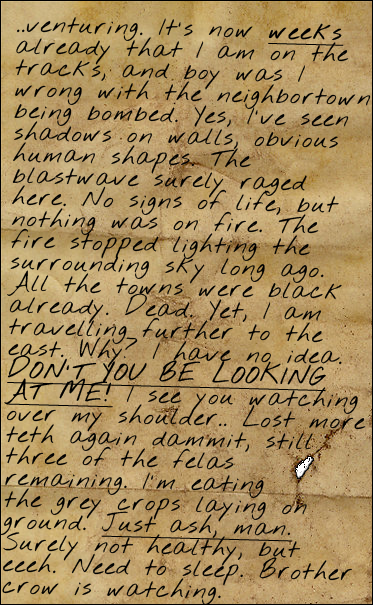 ..venturing. It's now weeks
already that I am on the
tracks, and boy was I
wrong with the neighbortown
being bombed. Yes, I've seen
shadows on walls, obvious
human shapes. The
blastwave surely raged
here. No signs of life, but
nothing was on fire. The
fire stopped lighting the
surrounding sky long ago.
All the towns were black
already. Dead. Yet, I am
travelling further to the
east. Why? I have no idea.
DON'T YOU BE LOOKING
AT ME! I see you watching
over my shoulder.. Lost more
teth again dammit, still
three of the felas
remaining. I'm eating
the grey crops laying on
ground. Just ash, man.
Surely not healthy, but
eeeh. Need to sleep. Brother
crow is watching.